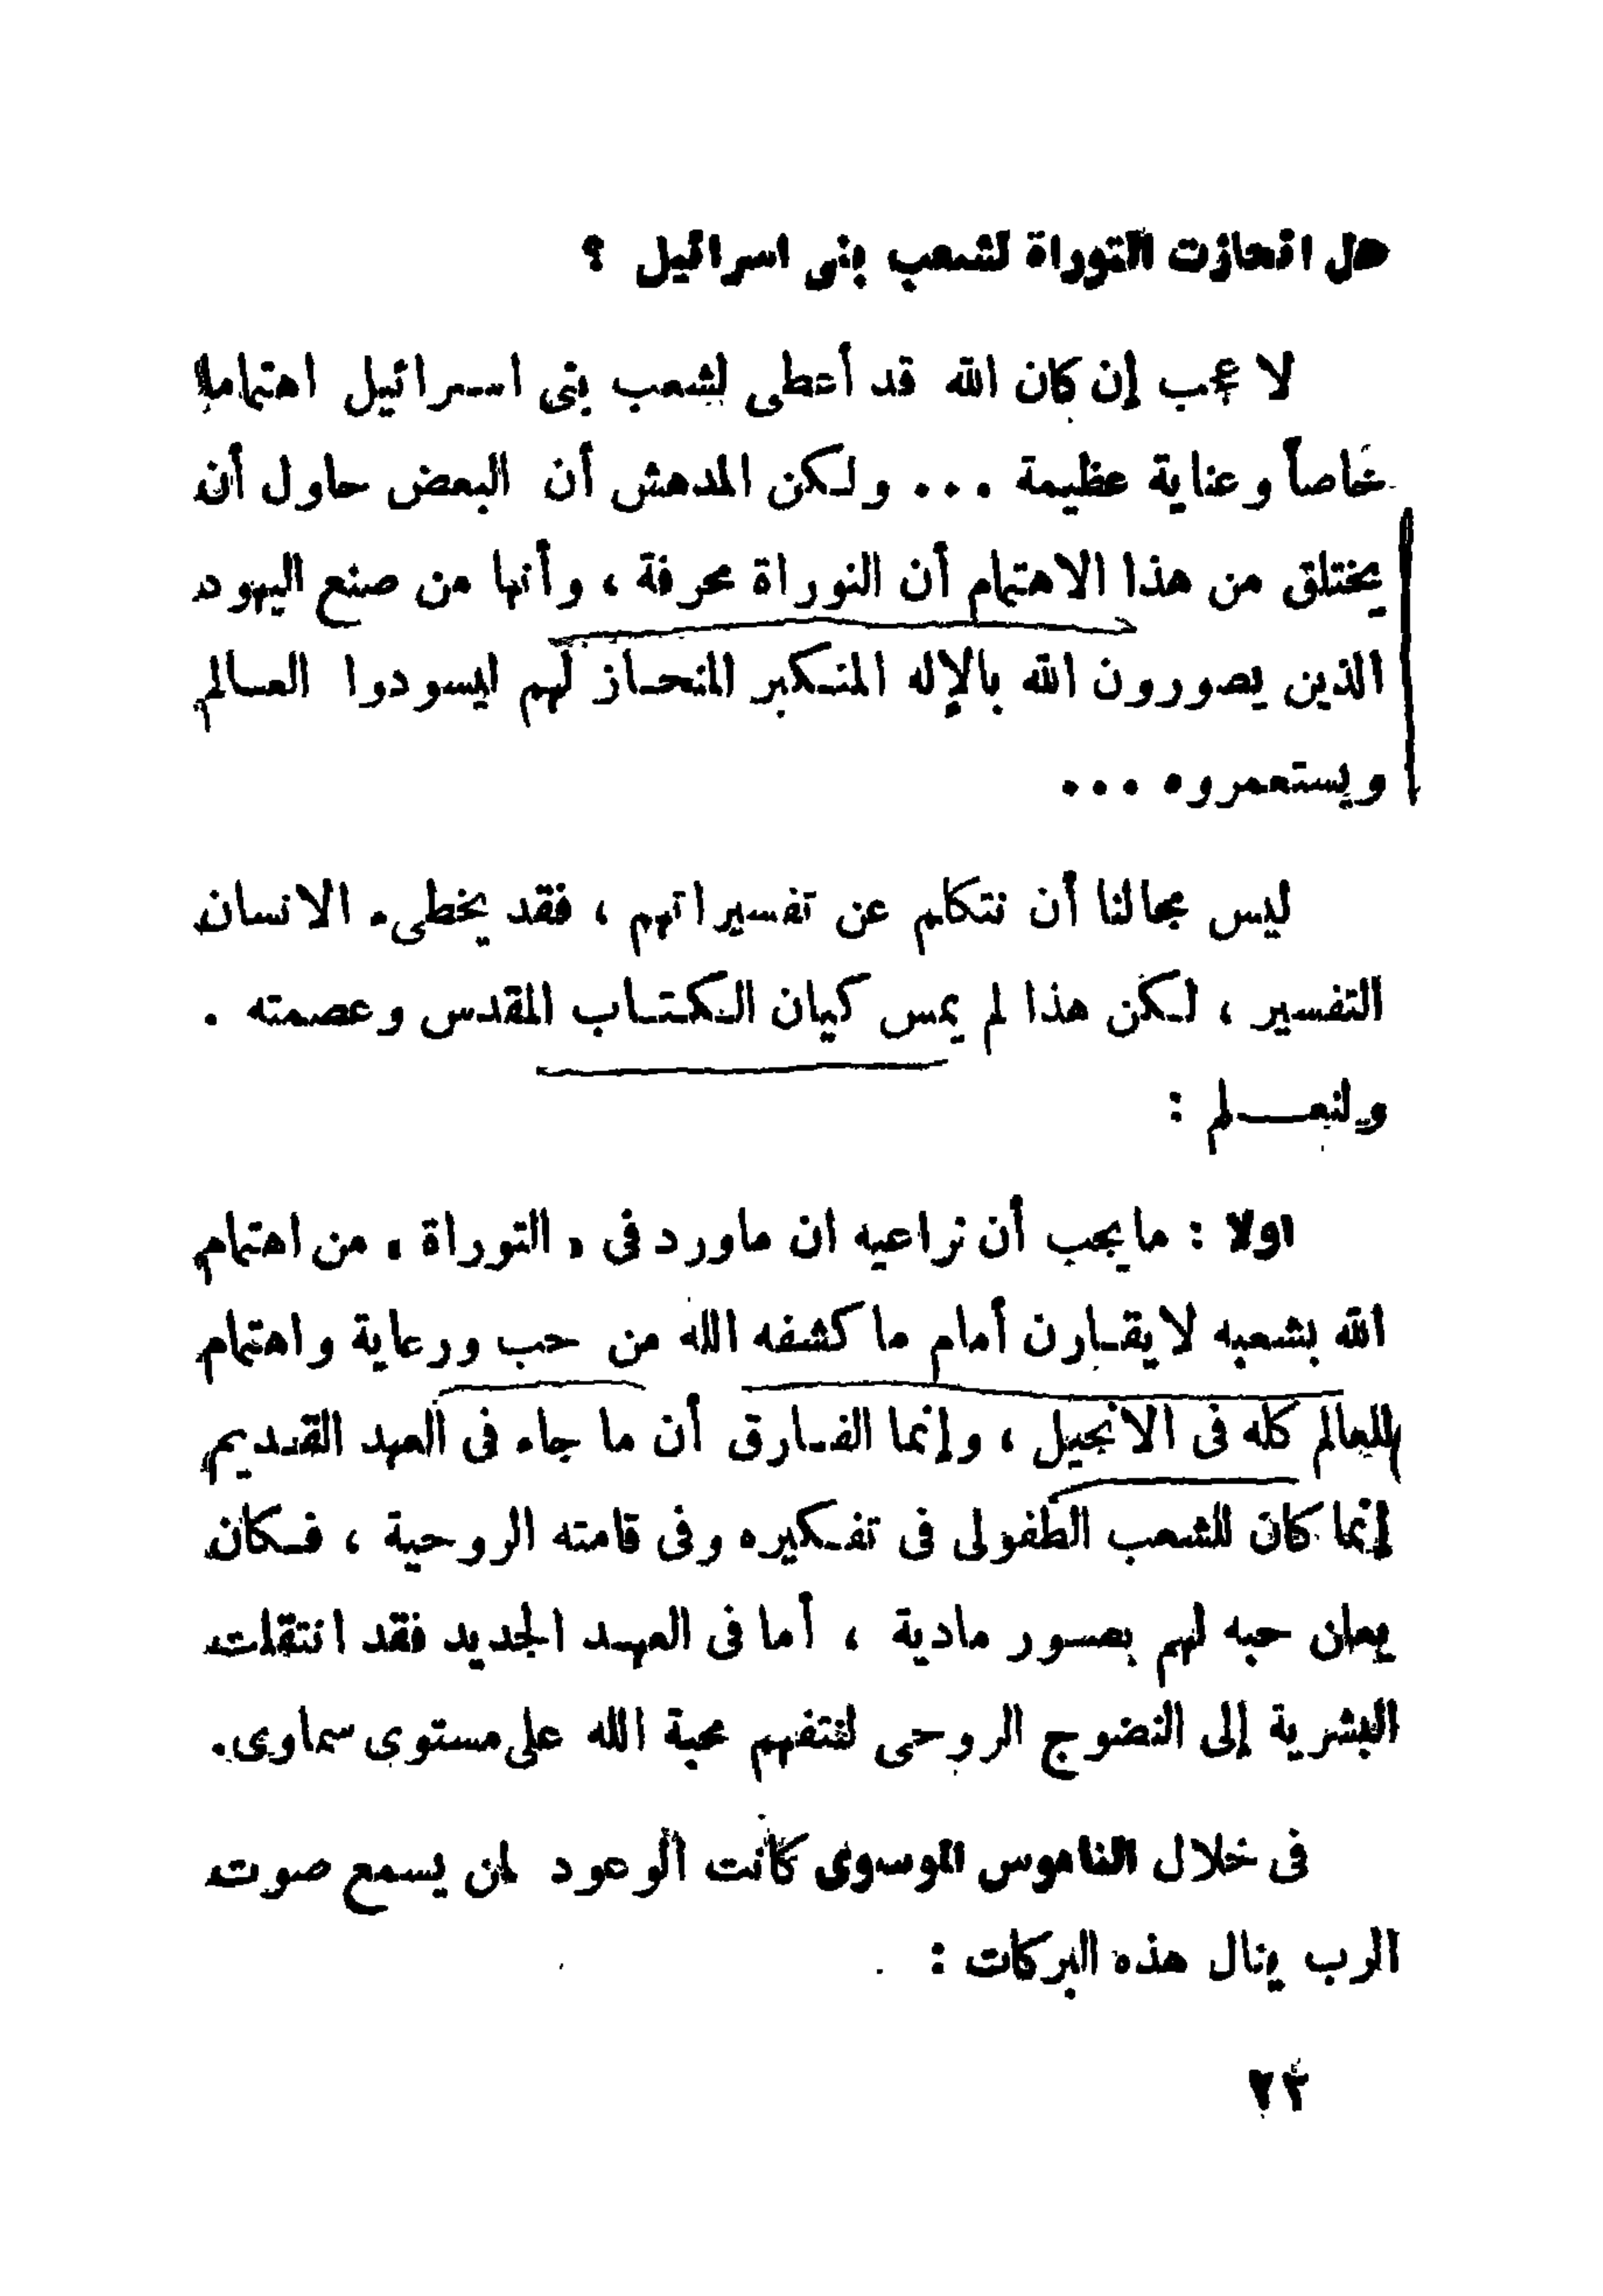 هل انحازت التوراة لشعب بنى اسرائيل ؟
لا عجب إن كان الله قد أعطى لشعب بنى اسرائيل اهتماما
خاصاً وعناية عظيمة ... ولكن المدهش أن البعض حاول أن
يختلق من هذا الاهتمام أن التوراة محرفة ، وأنها من صنع اليهود
الذين يصورون الله بالإله المتكبر المنحاز لهم ليسودوا العالم
ويستعمروه ...
ليس مجالنا أن نتكلم عن تفسيراتهم ، فقد يخطىء الانسان
التفسير ، لكن هذا لم يمس كيان الكتاب المقدس وعصمته .
ولنعلم :
اولا : مايجب أن نراعيه ان ماورد فى « التوراة » من اهتمام
الله بشعبه لايقارن أمام ما كشفه الله من حب ورعاية واهتمام
للعالم كله فى الانجيل ، وإنما الفارق أن ما جاء فى العهد القديم
إنما كان للشعب الطفولى فى تفكيره وفى قامته الروحية ، فكان
يعلن حبه لهم بصور مادية ، أما فى العهد الجديد فقد انتقلت
البشرية إلى النضوج الروحى لتتفهم محبة الله على مستوى سماوى.
فى خلال الناموس الموسوى كانت الوعود لمن يسمع صوت
الرب ينال هذه البركات :
٢٣